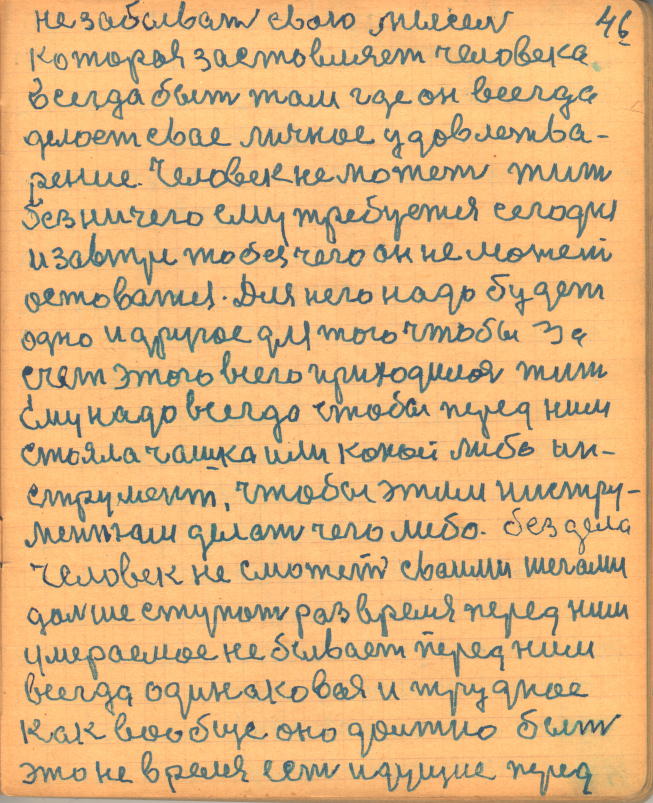 незабыват свою мысел 46
которая заставляет человека
всегда быт там где он всегда
делает свае личное удовлетва-
рение. Человек не может жит
без ничего ему требуется сегодня
и завтри то без чего он не может
остоватя. Для него надо будет
одно и другое для того чтобы За
счет этого всего приходился жит
Ему надо всегдо чтобы перед ним
стояла чашка или какой либо ин-
струмент, чтобы этим инстру-
ментам делат чего либо. без дела
человек не сможет сваими шегами
далше ступат раз время перед ним
умераемое не бывает перед ним
всегда одинаковая и трудное
как вообще оно должно быт
это не время ест идущие перед